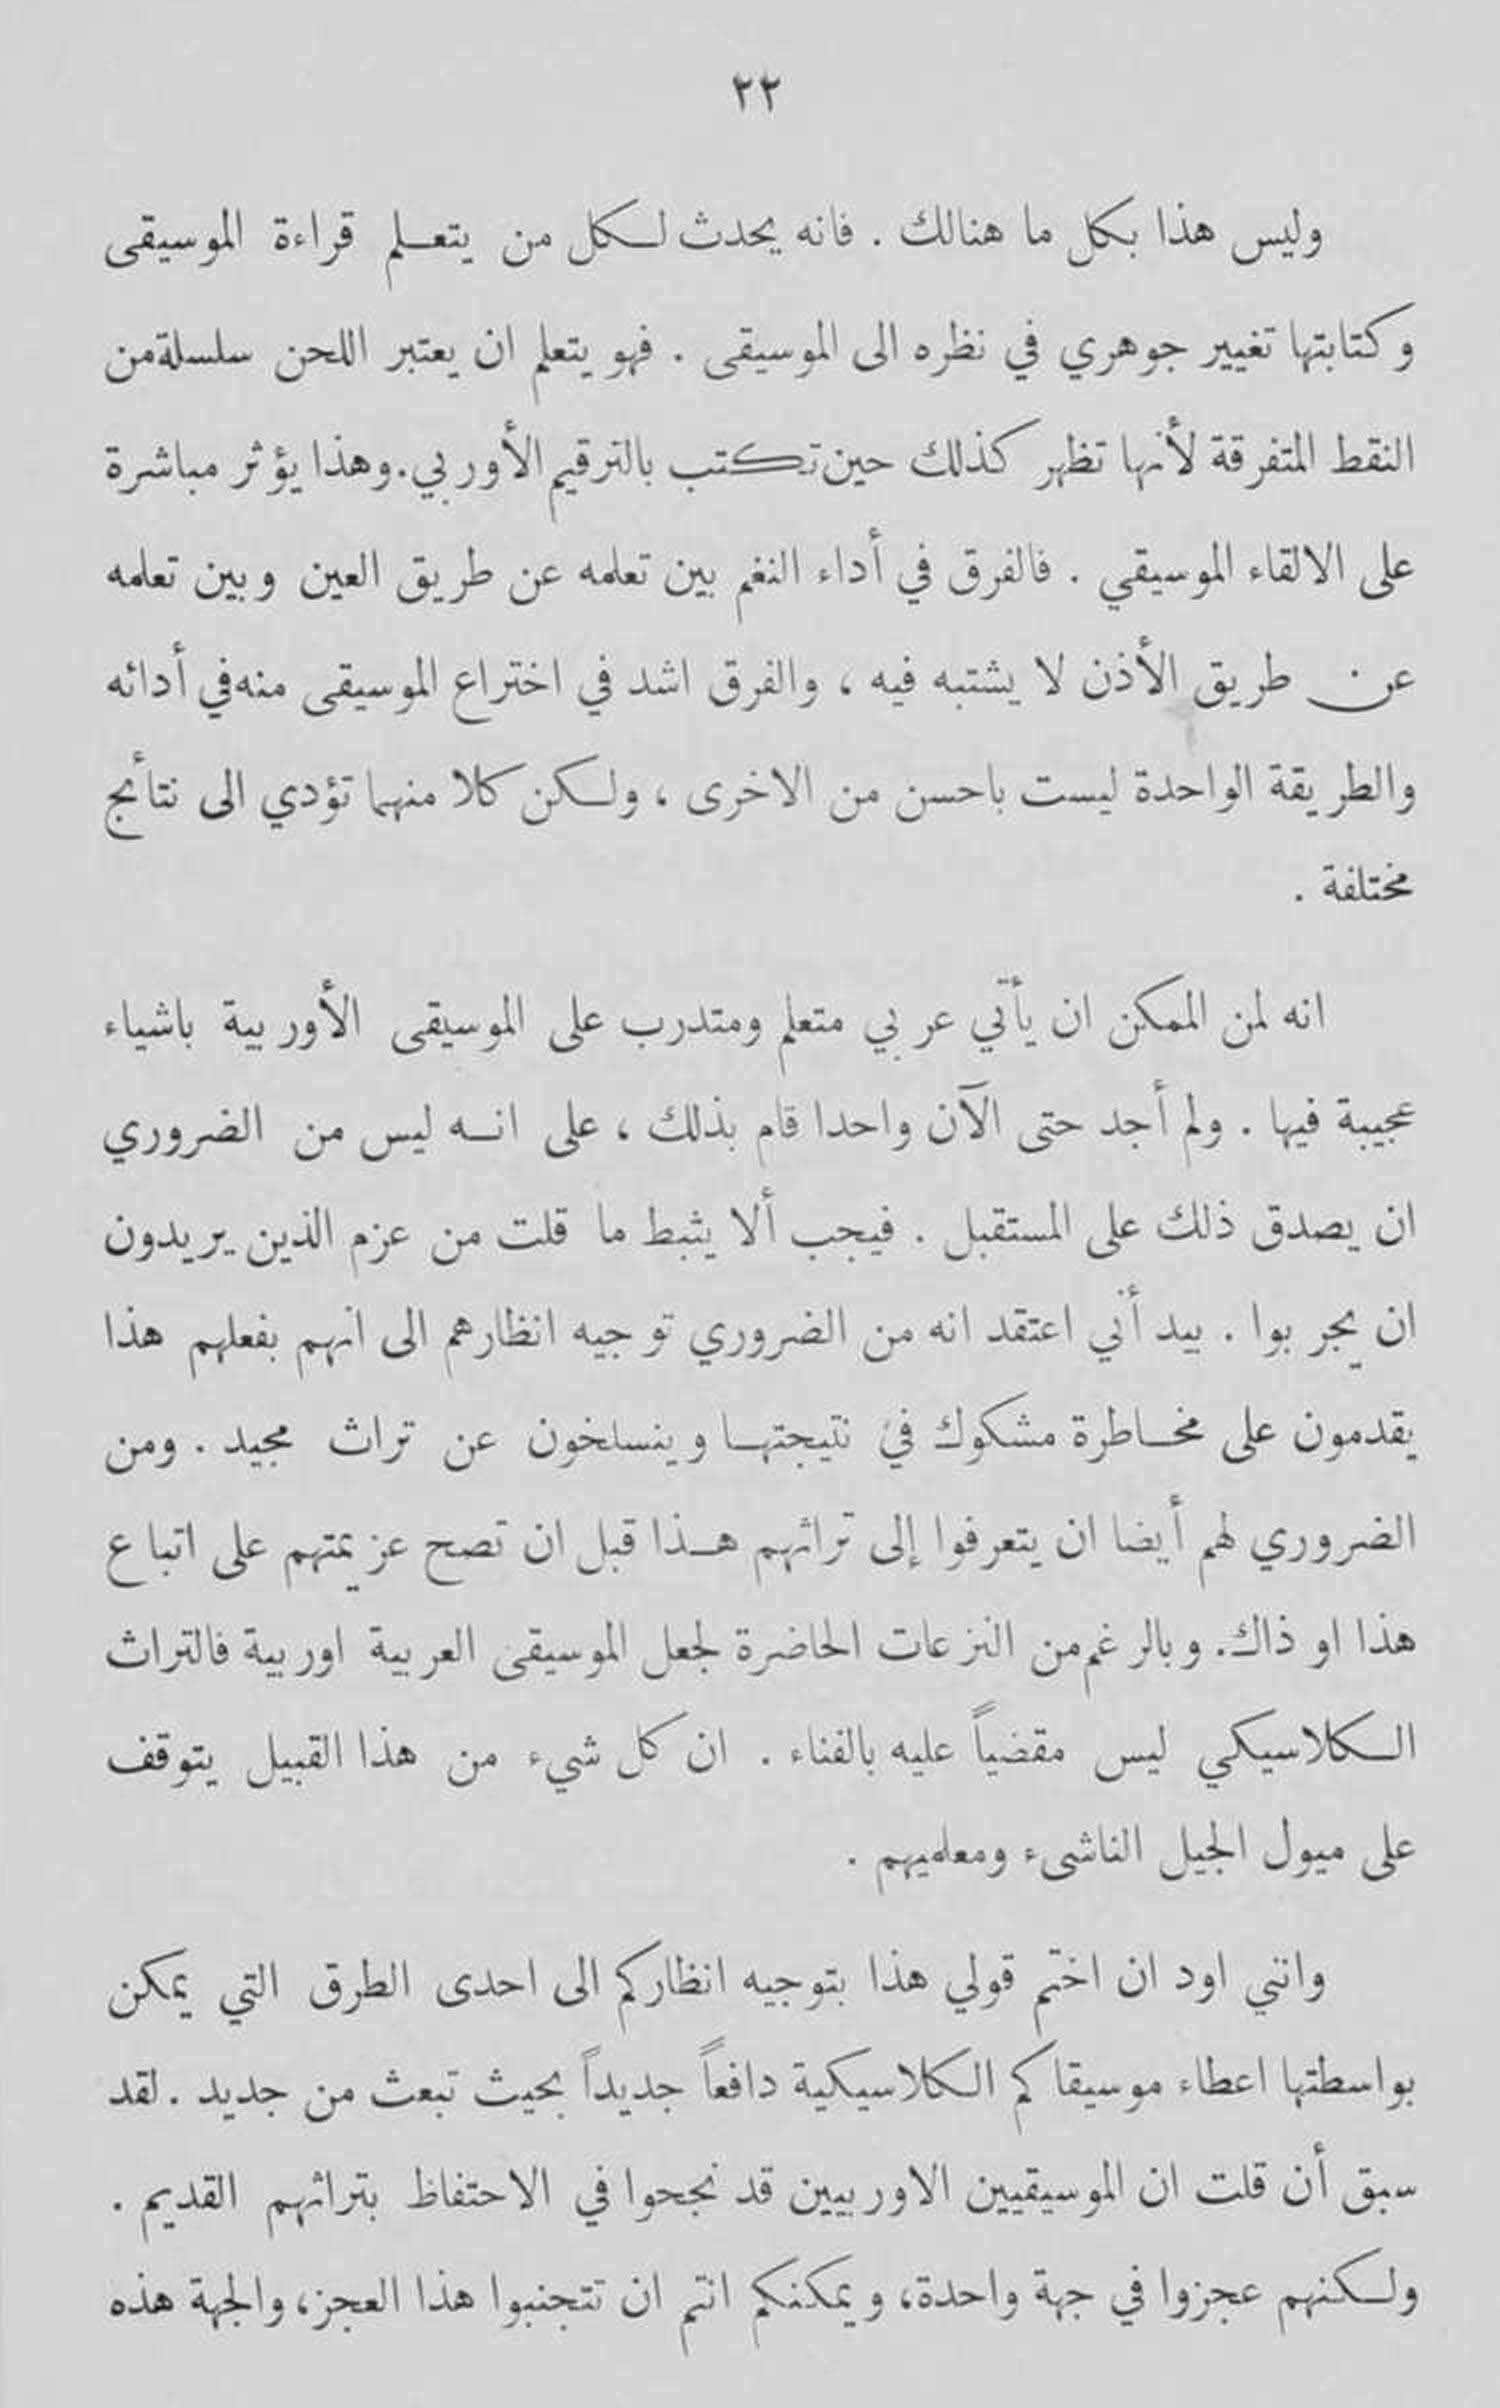 ٢٢
وليس هذا بكل ما هنالك . فانه يحدث لكل من يتعلم قراءة الموسيقى
وكتابتها تغيير جوهري في نظره الى الموسيقى . فهو يتعلم ان يعتبر اللحن سلسلة من
النقط المتفرقة لأنها تظهر كذلك حين تكتب بالترقيم الأوربي . وهذا يؤثر مباشرة
على الالقاء الموسيقي . فالفرق في أداء النغم بين تعلمه عن طريق العين وبين تعلمه
عن طريق الأذن لا يشتبه فيه ، والفرق اشد في اختراع الموسيقى منه في أدائه
والطريقة الواحدة ليست باحسن من الاخرى ، ولكن كلا منهما تؤدي الى نتائج
مختلفة .
انه لمن الممكن ان يأتي عربي متعلم ومتدرب على الموسيقى الأوربية باشياء
عجيبة فيها . ولم أجد حتى الآن واحدا قام بذلك ، على انه ليس من الضروري
ان يصدق ذلك على المستقبل . فيجب ألا يثبط ما قلت من عزم الذين يريدون
ان يجربوا . بيد أني اعتقد انه من الضروري توجيه انظارهم الى انهم بفعلهم هذا
يقدمون على مخاطرة مشكوك في نتيجتها وينسلخون عن تراث مجيد . ومن
الضروري لهم أيضا ان يتعرفوا إلى تراثهم هذا قبل ان تصح عزيمتهم على اتباع
هذا او ذاك . وبالرغم من النزعات الحاضرة لجعل الموسيقى العربية اوربية فالتراث
الكلاسيكي ليس مقضياً عليه بالفناء . ان كل شيء من هذا القبيل يتوقف
على ميول الجيل الناشىء ومعلميهم .
وانني اود ان اختم قولي هذا بتوجيه انظاركم الى احدى الطرق التي يمكن
بواسطتها اعطاء موسيقاكم الكلاسيكية دافعاً جديداً بحيث تبعث من جديد . لقد
سبق أن قلت ان الموسيقيين الاوربيين قد نجحوا في الاحتفاظ بتراثهم القديم .
ولكنهم عجزوا في جهة واحدة، ويمكنكم انتم ان تتجنبوا هذا العجز، والجهة هذه